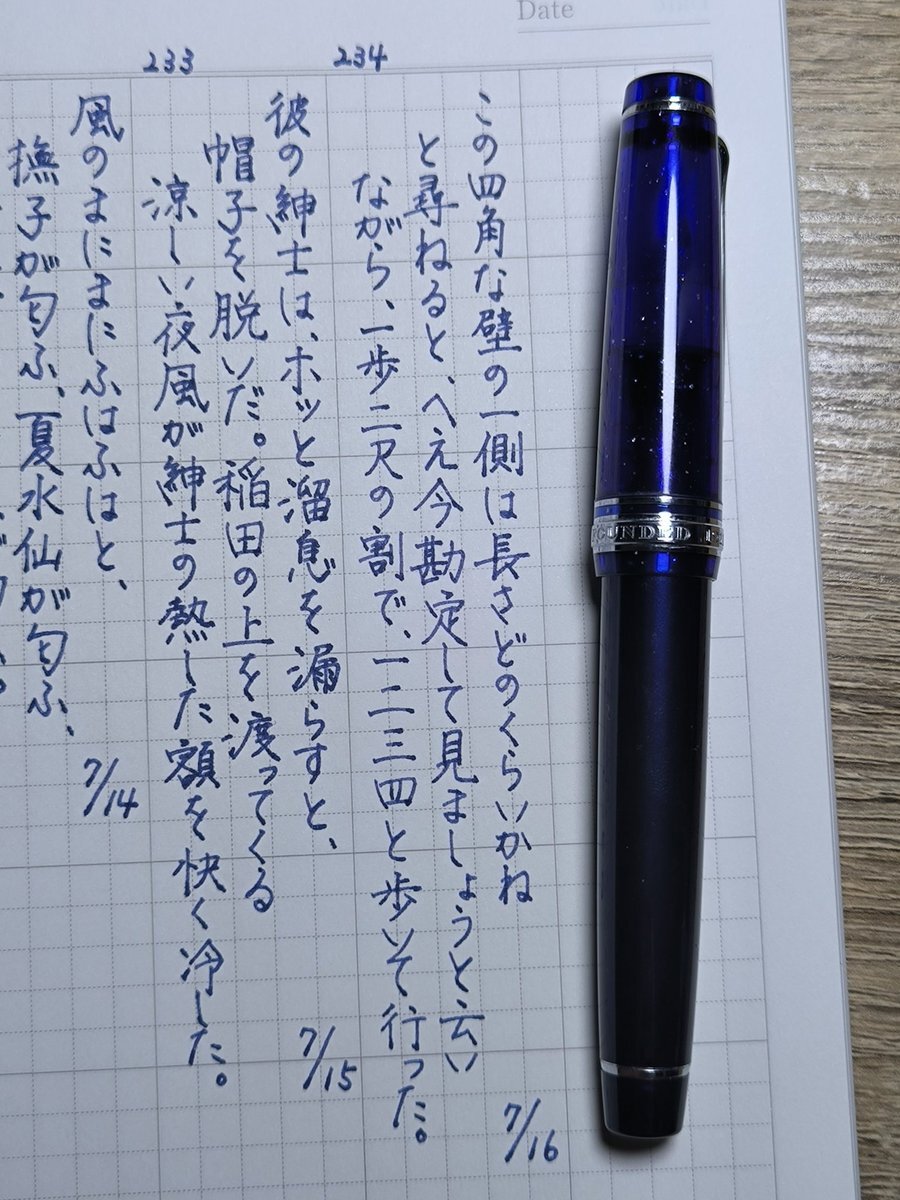 Date
この四角な壁の一側は長さどのくらいかね
と尋ねると、へえ今勘定して見ましょうと云い
ながら、一歩二尺の割で、一二三四と歩いて行った。
7/16
234
彼の紳士は、ホッと溜息を漏らすと、
帽子を脱いだ。稲田の上を渡ってくる
涼しい夜風が紳士の熱した額を快く冷した。
7/15
233
風のまにまにふはふはと、
撫子が匂ふ、夏水仙が匂ふ、
7/14
OUNDED 1